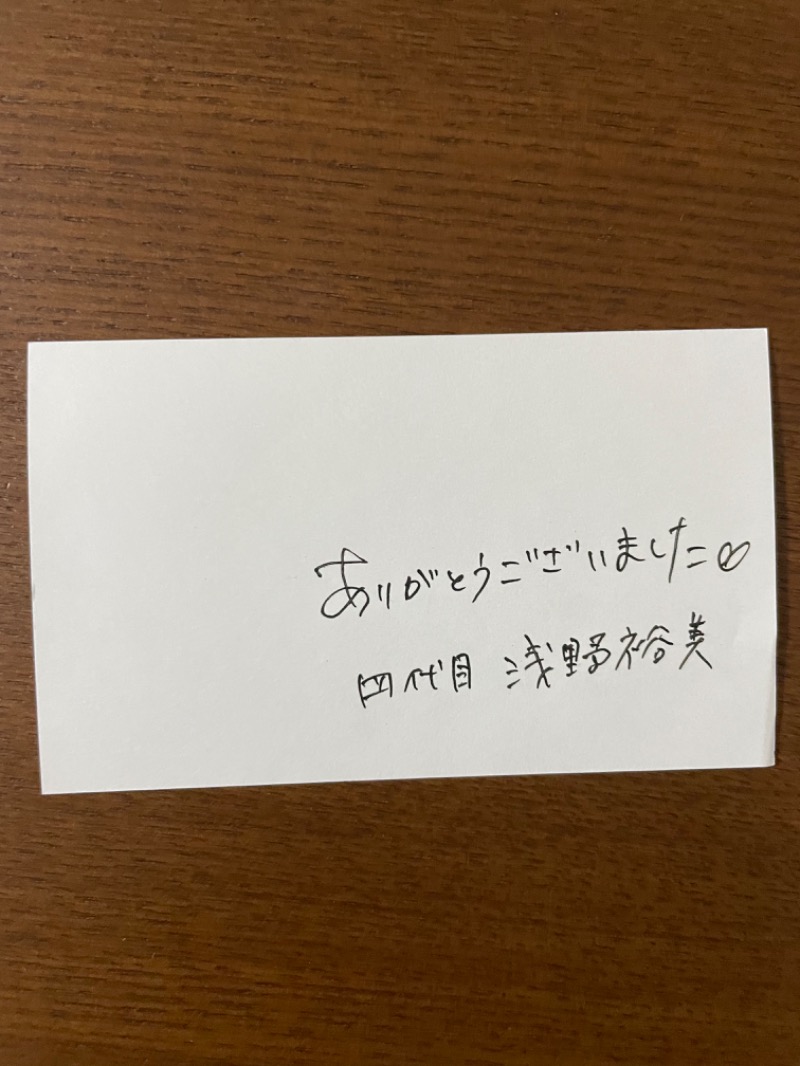 ありがとうございました♡
四代目 浅野裕美